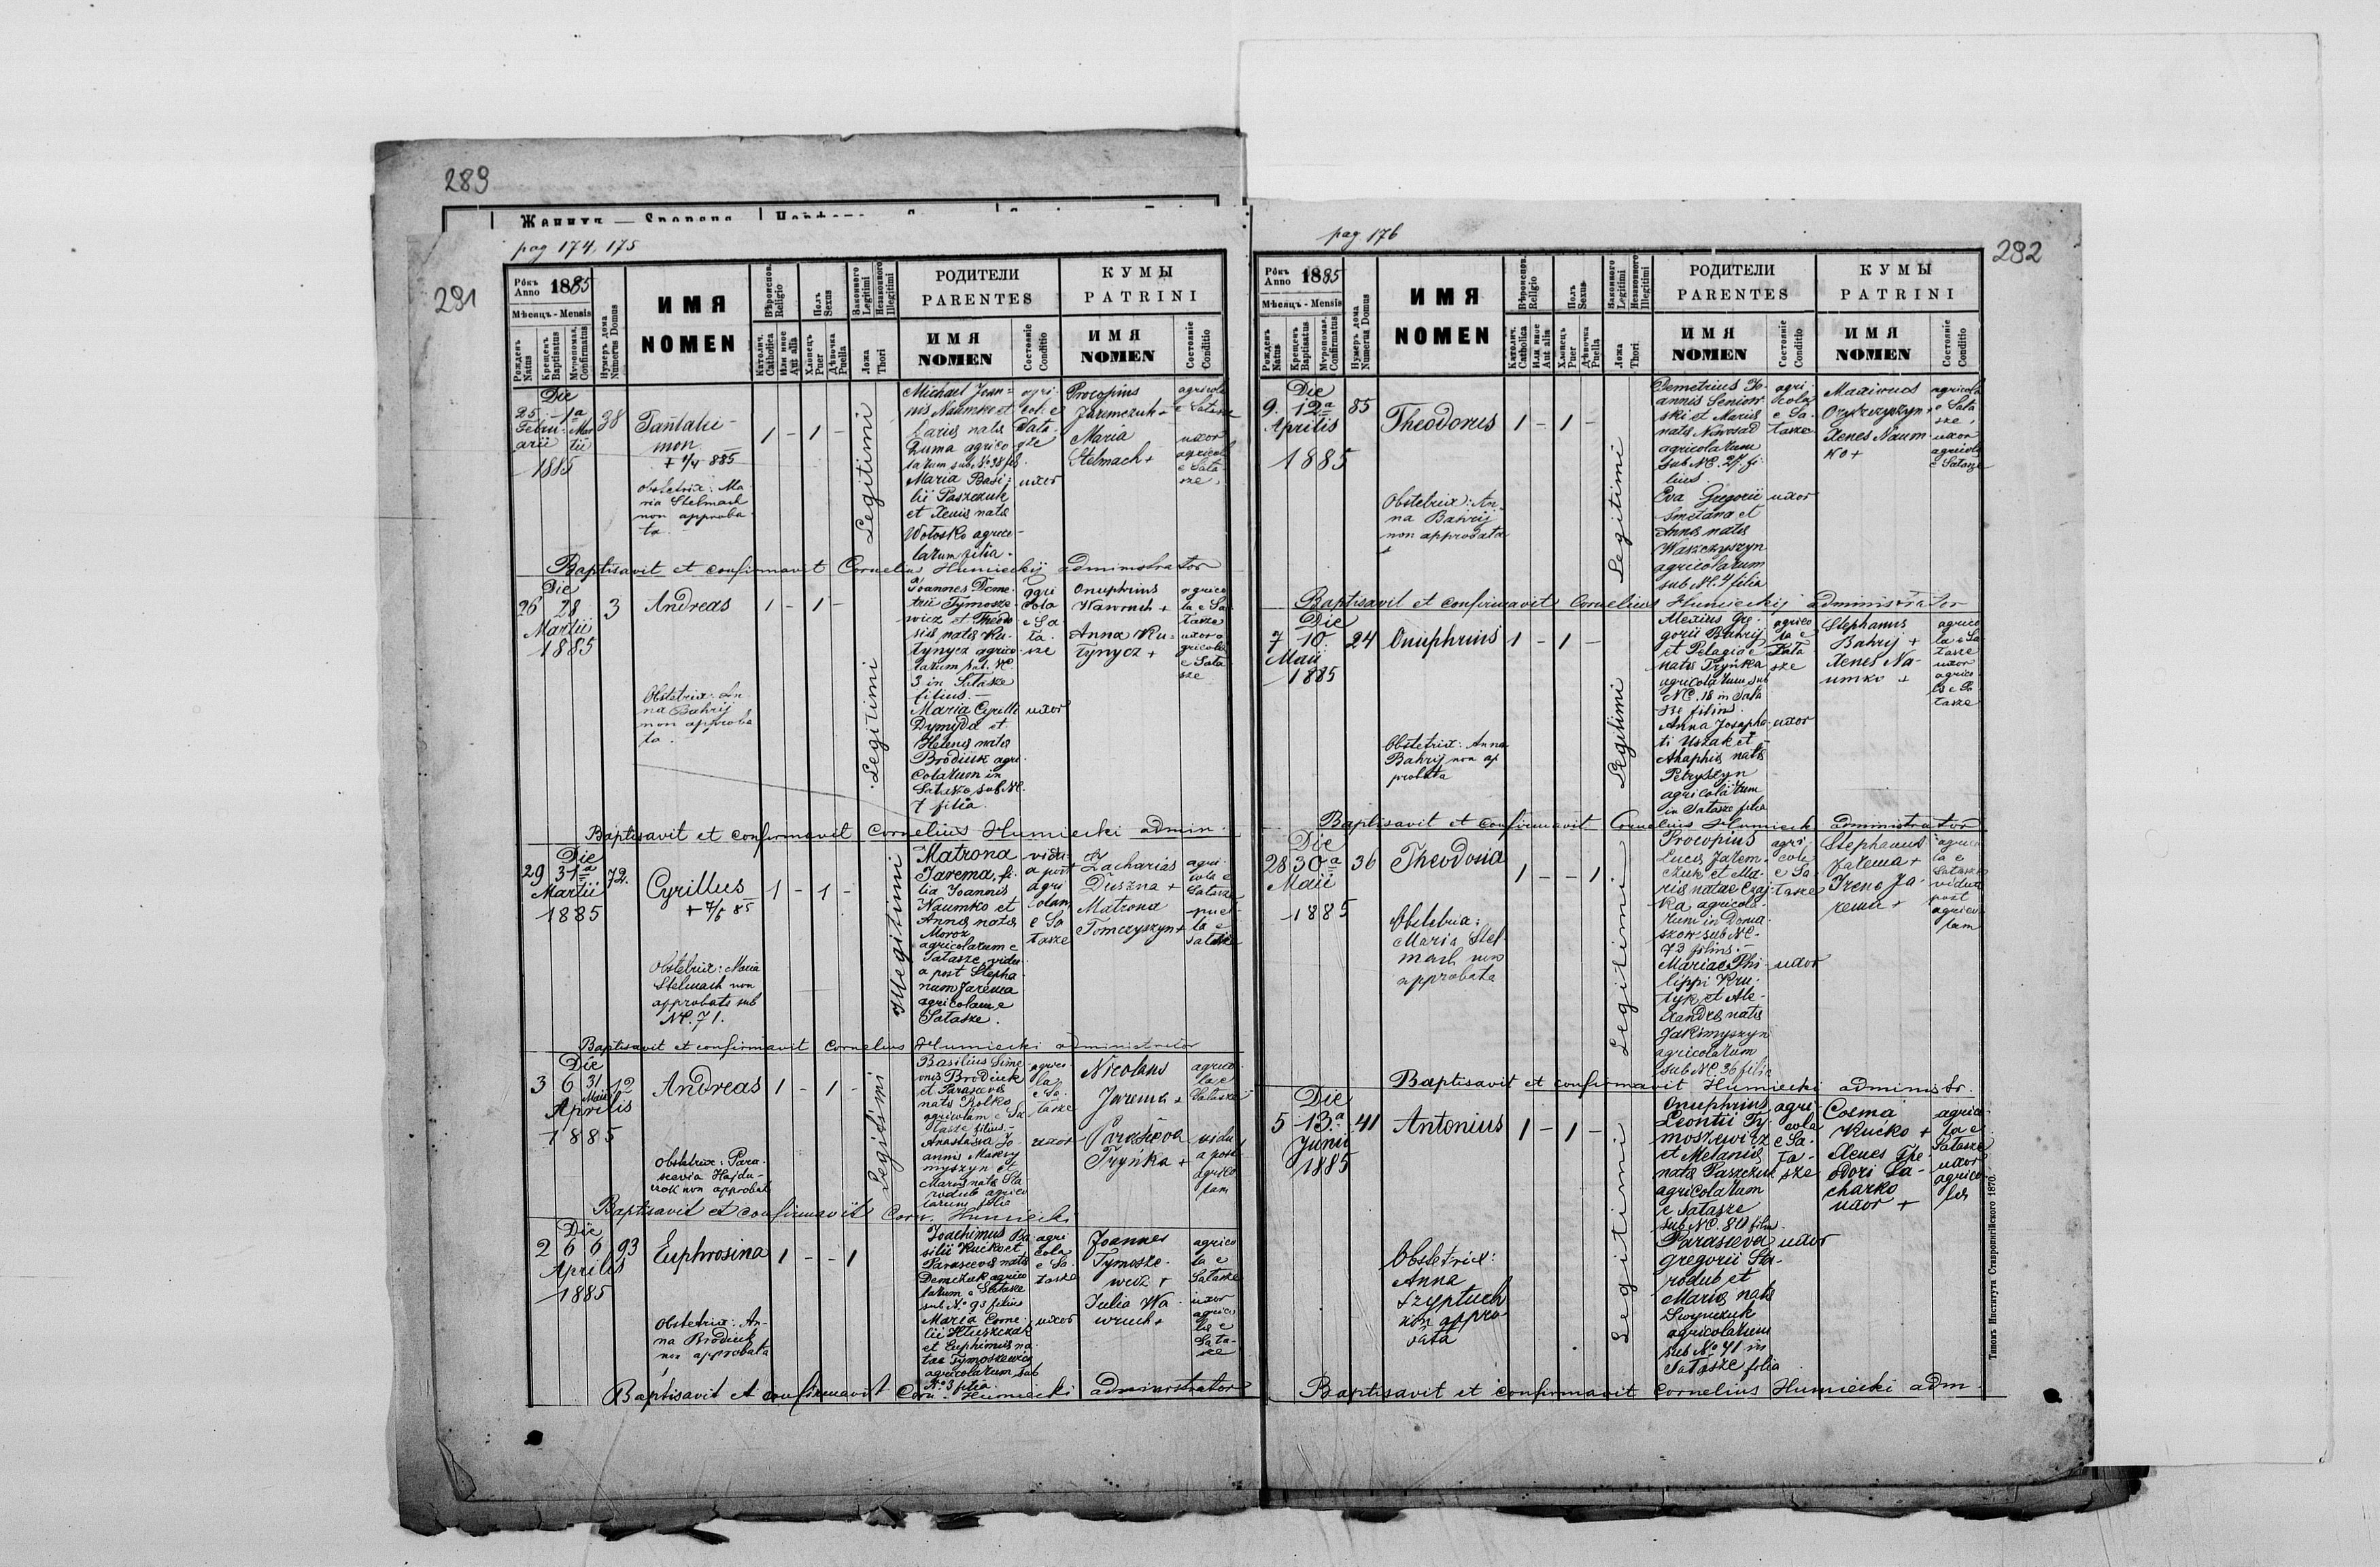 289
Женихъ — Sponsus
pag 174, 175
291
Рôкъ Anno 1885
Мѣсяцъ - Mensis
Рожденъ Natus
Крещенъ Baptisatus
Мѵропомаз. Confirmatus
Нумеръ дома Numerus Domus
ИМЯ
NOMEN
Вѣроиспов. Religio
Католич. Catholica
Или иное Aut alia
Полъ Sexus
Хлопецъ Puer
Дѣвочка Puella
Законного Legitimi
Незаконного Illegitimi
Ложа Thori
РОДИТЕЛИ
PARENTES
ИМЯ
NOMEN
Состояніе Conditio
КУМЫ
PATRINI
ИМЯ
NOMEN
Состояніе Conditio
Die
25 1a
Febru- Mar
arii tii
1885
38
Pantalei-
mon
+ 1/4 885
obstetrix: Ma
ria Stelmach
non approba
ta
1 - 1 -
Legitimi
Michael Joan=
nis Naumko et
Zuma agrico
larum sub No 38 fil
Maria Basi=
lii Paszczuk
et Xenis nata
Wołosko agrico-
larum filia.
agri-
col. e
Sata-
sze
uxor
Procopius
Jaremczuk +
Maria
Stelmach +
agricola
e Satasze
uxor
agricol
e Sata
sze
Baptisavit et confirmavit Cornelius Humieckij administrator
Die
26 28
Martii
1885
3
Andreas
1 - 1 -
Obstetrix: An
na Bahrij
non approba
ta.
Legitimi
Joannes Deme
trii Tymosze-
wicz et Theodo
sis nata Ku-
tynycz agrico
larum sub. NC
3 in Satasze
filius. -
Maria Cyrilli
Dymyda et
Helenes nata
Brodiuk agri-
colarum in
Satasze sub NC.
7 filia.
agri
cola
e Sa
ta-
sze
uxor
Onuphrius
Wawruch +
Anna Ku=
tynycz +
agrico
la e Sa
tasze
uxor a
gricolæ
e Sata
sze
Baptisavit et confirmavit Cornelius Humiecki admin.
Die
29 31a
Martii
1885
72.
Cyrillus
+ 7/5 85
1 - 1 -
Obstetrix: Maria
Stelmach non
approbata sub
NC. 71.
Illegitimi
Matrona
Jarema, fi-
lia Joannis
Naumko et
Annes nata
Moroz
agricolarum e
Satasze, vidu
a post Stepha
num Jarema
agricolam e
Satasze.
vidu-
a post
agri
colam
e Sa
tasze
Zacharias
Duszna +
Matrona
Tomczyszyn +
agri-
cola e
Satasze
puel-
la e
Satasze
Baptisavit et confirmavit Cornelius Humiecki administrator
Die
3 6 31.
Maii
Aprilis
1885
12
Andreas
1 - 1 -
Obstetrix: Para-
scevia Hajdu-
non approbat
Legitimi
Basilius Sime
onis Brodiuk
et Parascevis
nata Rolko
agricolum e Sa
tasze filius. -
Anastasia Jo
annis Maksy
myszyn et
Maries nata Sta
rodub agrico
larum filia
agrico
la
e Sa
tasze
uxor
Nicolaus
Jarema +
Parasceva
Tryńka +
agrico-
la e
Satasze
vidu
a post
agrico
lam
Baptisavit et confirmavit Corn. Humiecki
Die
2 6 6
Aprilis
1885
93
Euphrosina
1 - - 1
Obstetrix: An-
na Brodiuk
non approbata
Joachimus Ba
silii Kućko et
Parascevis nata
Demczuk agrico
larum e Satasze
sub No 93 filius
Maria Corne-
lii
et Euphimis na
tae Tymoszewicz
agricolarum sub
No 3 filia.
agri
cola
e Sa
tasze
uxor
Joannes
Tymosze-
wicz +
Julia Wa
wruch +
agrico
la e
Satasze
uxor
agrico
læ e
Sata-
sze
Baptisavit et confirmavit Corn. Humiecki administrator
pag 176
292
Рôкъ Anno 1885
Мѣсяцъ - Mensis
Рожденъ Natus
Крещенъ Baptisatus
Мѵропомаз. Confirmatus
Нумеръ дома Numerus Domus
ИМЯ
NOMEN
Вѣроиспов. Religio
Католич. Catholica
Или иное Aut alia
Полъ Sexus
Хлопецъ Puer
Дѣвочка Puella
Законного Legitimi
Незаконного Illegitimi
Ложа Thori
РОДИТЕЛИ
PARENTES
ИМЯ
NOMEN
Состояніе Conditio
КУМЫ
PATRINI
ИМЯ
NOMEN
Состояніе Conditio
Die
9. 12a
Aprilis
1885
85
Theodorus
1 - 1 -
Obstetrix: An-
na Bahrij
non approbata
Legitimi
Demetrius Jo-
annis Seniow-
ski et Maries
nata Nowosad
agricolarum
sub NC. 27 fi-
lius.
Eva Gregorii
Smetana et
Annes nata
Waszczyszyn
agricolarum
sub NC. 4 filia
agri-
cola
e Sa-
tasze
uxor
Maximus
Oryszczyszyn +
Xenes Naum-
ko +
agricola
e Sata
sze,
uxor
agricolæ
e Satasze
Baptisavit et confirmavit Cornelius Humieckij administrator
Die
7 10
Maii
1885
24
Onuphrius
1 - 1 -
Obstetrix: Anna
Bahrij non ap
probata
Legitimi
Alexius Gre-
gorii Bahrij
et Pelagia e
nata Tryńka
agricolarum sub
NC. 18 in Sata
sze filius.
Anna Josapha-
ti Uszak et
Ahaphis nata
Petryszyn
agricolarum
in Satasze filia
agrico
la e
Sata
sze
uxor
Stephanus
Bahrij +
Xenes Na-
umko +
agrico
la e Sa
tasze
uxor
agrico-
læ e Sa
tasze
Baptisavit et confirmavit Cornelius Humiecki administrator
Die
28 30a
Maii
1885
36
Theodosia
1 - - 1
Obstetrix:
Maria Stel-
mach non
approbata
Legitimi
Procopius
Luces Jarem-
czuk et Ma-
ris natae Czaj-
ka agricola-
rum in Doma-
szow sub NC.
73 filius. -
Mariae Phi-
lippi Kru-
tyk et Ale-
xandres nata
Jakimyszyn
agricolarum
sub NC. 36 filia
agri-
cola
e Sa-
tasze
uxor
Stephanus
Jarema +
Irene Ja-
rema +
agrico
la e
Satasze
vidua
post
agrico-
lam
Baptisavit et confirmavit Humiecki administr.
Die
5 13.a
Junii
1885
41
Antonius
1 - 1 -
Obstetrix:
Anna
Szyptuch
non appro-
bata
Legitimi
Onuphrius
Leontii Ty-
moszewicz
et Melanies
nata Paszczuk
agricolarum
e Satasze
sub NC. 80 filiu.
Parasceva
Gregorii Sta-
rodub et
Maries nata
agricolarum
sub No 41 in
Satasze filia
agri-
cola
e Sa-
ta-
sze
uxor
Cosma
Kućko +
Xenes The-
odori Sa-
charko
uxor +
agrico-
la e
Satasze
uxor
agrico-
læ
Baptisavit et confirmavit Cornelius Humiecki adm.
Типомъ Института Ставропигійского 1870.